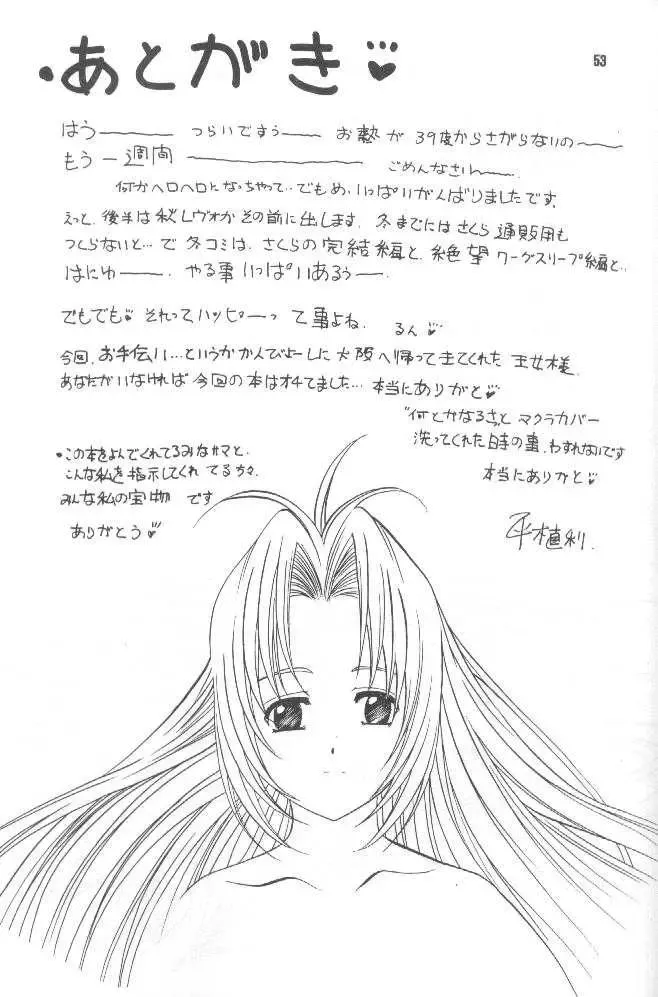 ・あとがき♥
53
はう――― つらいですぅ―― お熱が 39度からさがらないの―――
もう 一週間 ―――――――― ごめんなさい――.
何かヘロヘロになっちゃって‥でもめ、いっぱいがんばりましたです.
えっと、後半は秋レヴォかその前に出します. 冬までにはさくら通販用も
つくらないと…で冬コミは、さくらの完結編と、絶望ワーケスリープ編と..
はにゅ―――. やる事いっぱいあるぅ――.
でもでも♥ それってハッピーって事よね. るん♥
今回、お手伝い…というかかんびょーしに 大阪へ帰って きてくれた 王女様.
あなたがいなければ 今回の本はオチてました… 本当にありがと♥
"何とかなるさ"と マクラカバー
洗ってくれた時の事、わすれないです
本当にありがと♥
・この本をよんでくれてるみなサマと、
こんな私を指示してくれてる方々.
みんな私の宝物 です
ありがとう♥
平植利.